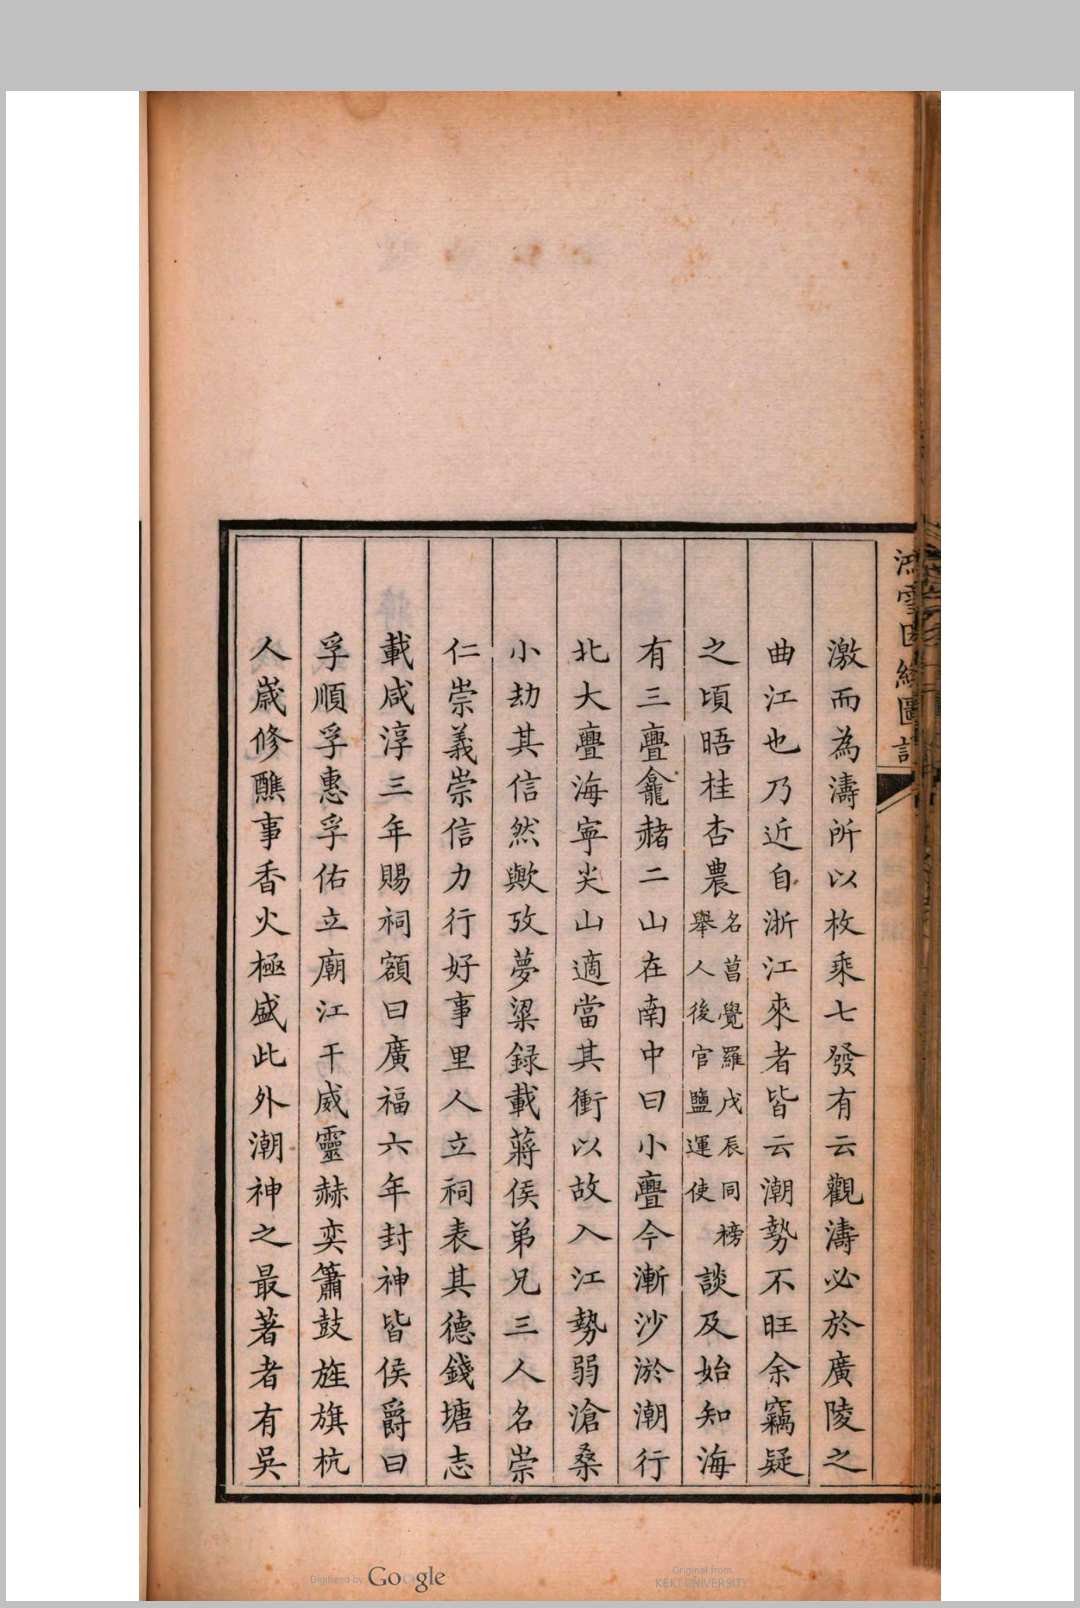 鴻雪因緣圖記
激而為濤所以枚乘七發有云觀濤必於廣陵之
曲江也乃近自浙江來者皆云潮勢不旺余竊疑
之頃晤桂杏農名菖覺羅戊辰同榜舉人後官鹽運使談及始知海
有三亹龕赭二山在南中曰小亹今漸沙淤潮行
北大亹海寧尖山適當其衝以故入江勢弱滄桑
小劫其信然歟攷夢粱録載蔣侯弟兄三人名崇
仁崇義崇信力行好事里人立祠表其德錢塘志
載咸淳三年賜祠額曰廣福六年封神皆侯爵曰
孚順孚惠孚佑立廟江干威靈赫奕簫鼓旌旗杭
人歲修醮事香火極盛此外潮神之最著者有吳
Digitized by Google
Original from
KEIO UNIVERSITY